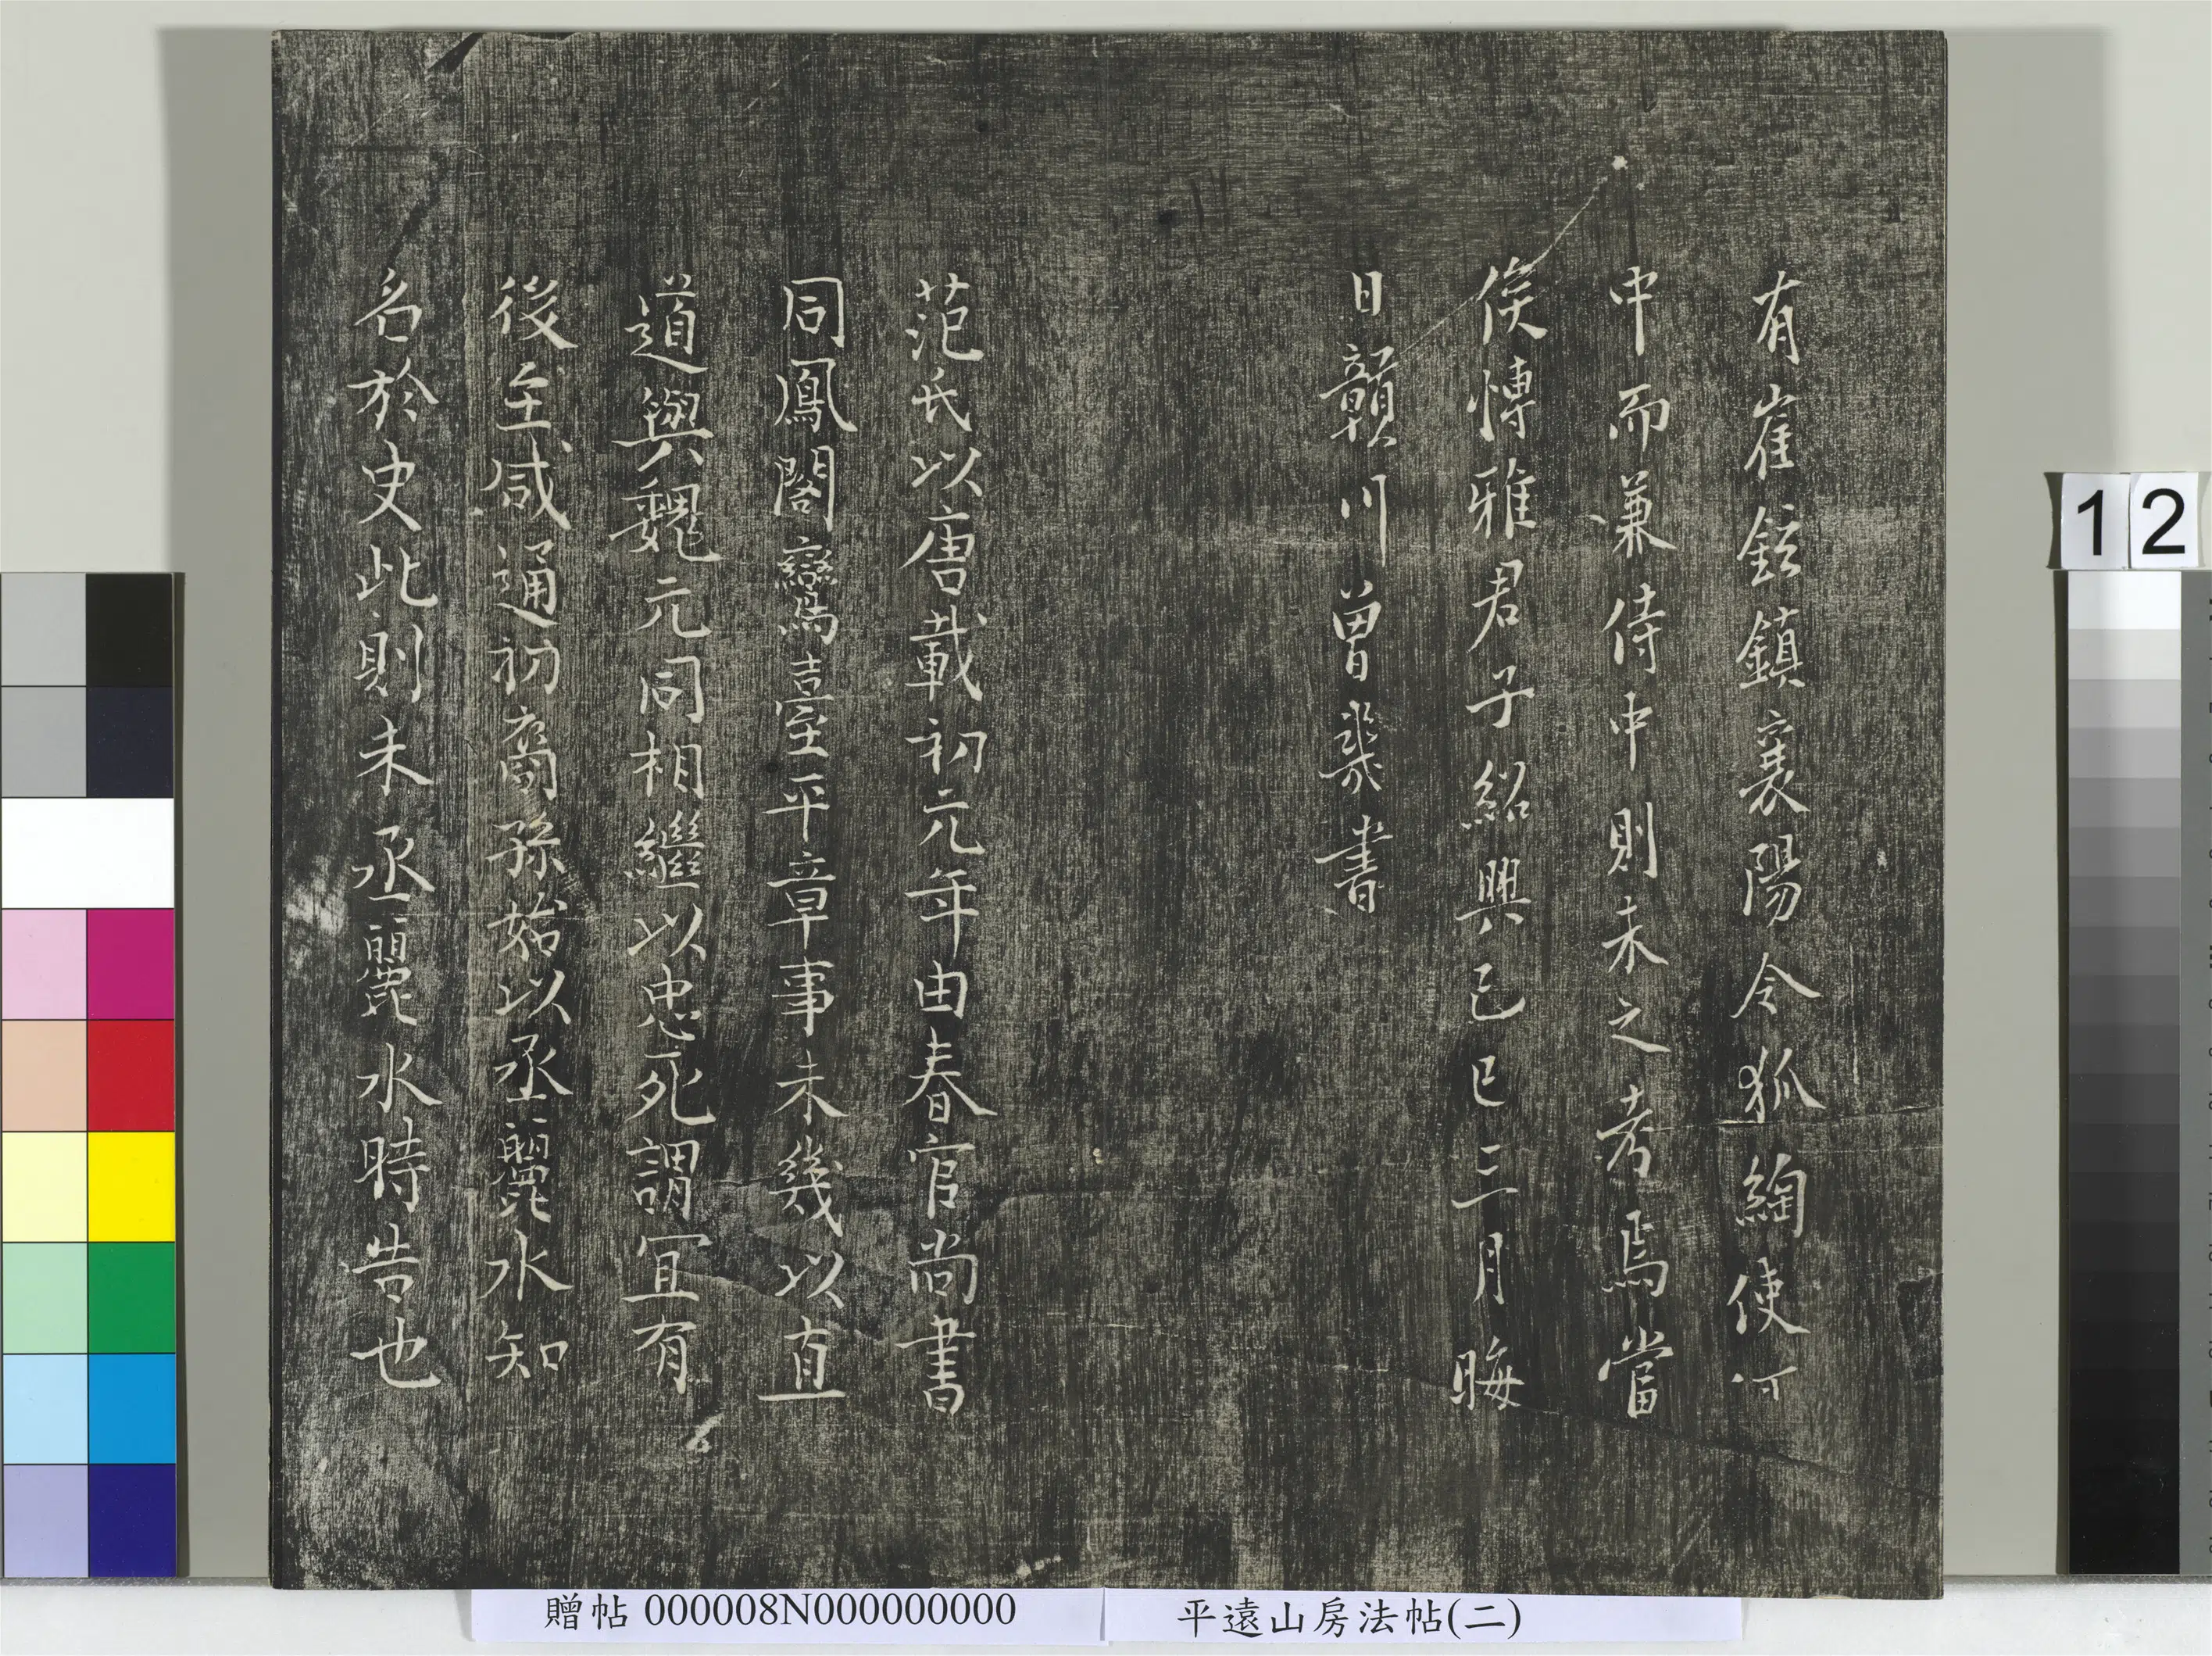 有崔鉉鎮襄陽令狐綯使河
中而兼侍中則未之考焉當
俟博雅君子紹興己巳二月晦
日贛川曾幾書
范氏以唐載初元年由春官尚書
同鳳閣鸞臺平章事未幾以直
道與魏元同相繼以忠死謂宜有
後至咸通初裔孫始以丞麗水知
名於史此則未丞麗水時告也
12
贈帖 000008N000000000
平遠山房法帖(二)